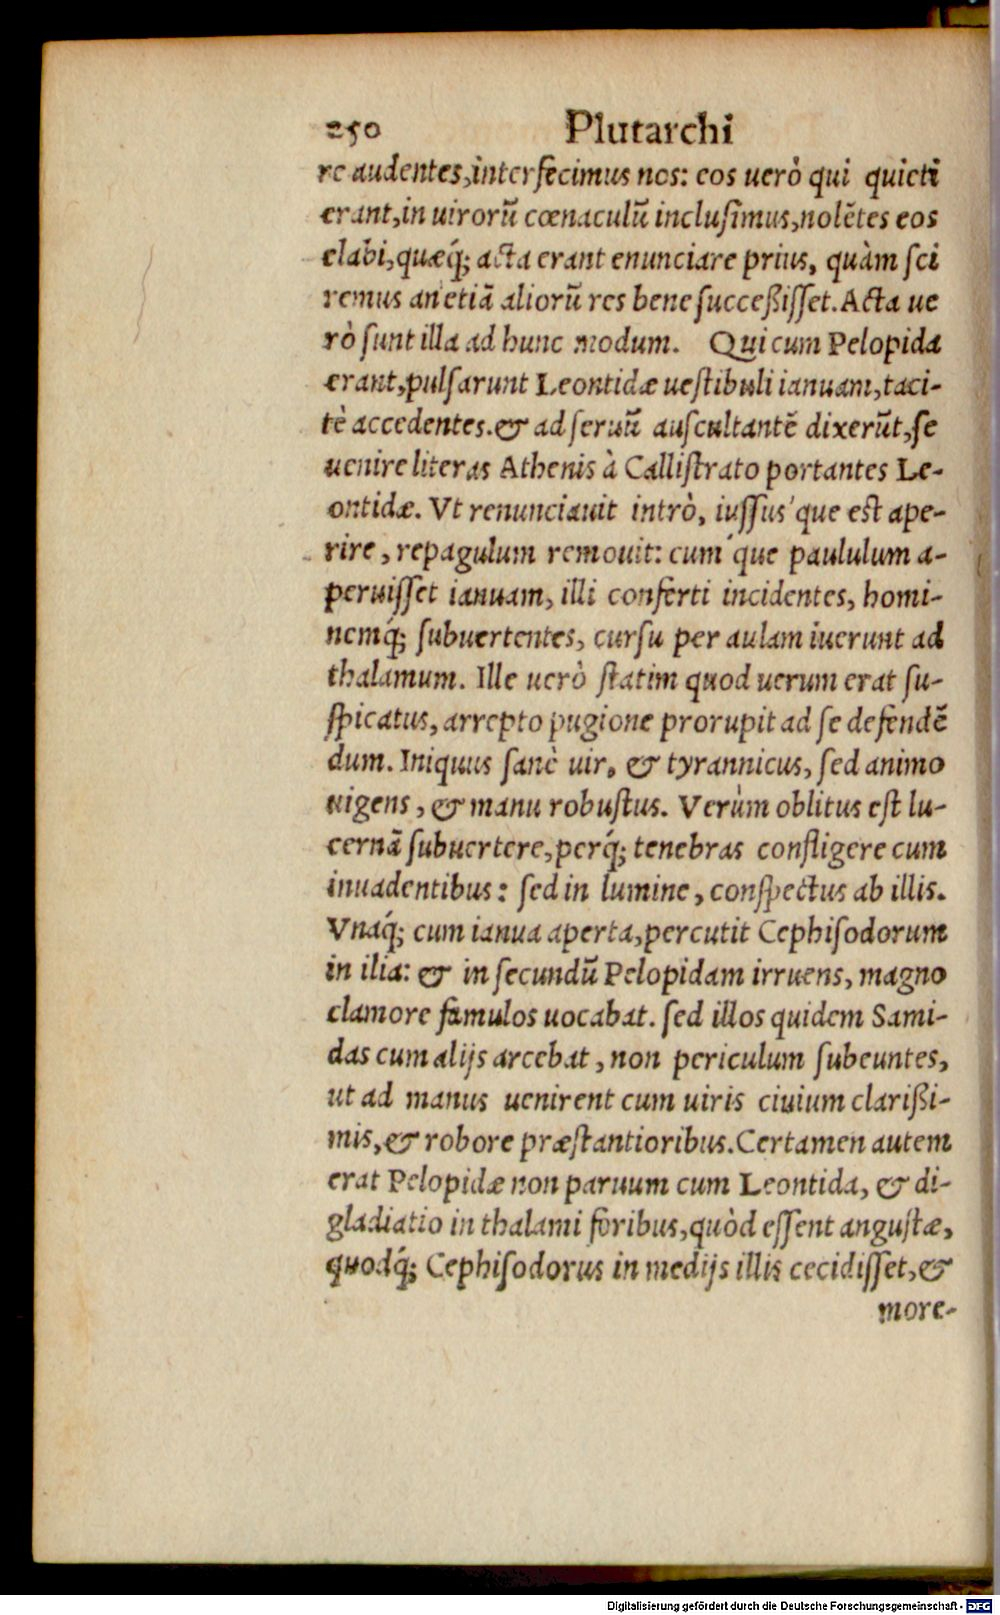 250 Plutarchi
re audentes, interfecimus nos: eos uerò qui quieti
erant, in uirorũ cœnaculũ inclusimus, nolẽtes eos
elabi, quæq́; acta erant enunciare prius, quàm sci
remus an etiã aliorũ res bene succeßisset. Acta ue
rò sunt illa ad hunc modum. Qui cum Pelopida
erant, pulsarunt Leontidæ uestibuli ianuam, taci-
tè accedentes. & ad seruũ auscultantẽ dixerũt, se
uenire literas Athenis à Callistrato portantes Le-
ontidæ. Vt renunciauit intrò, iussus'que est ape-
rire, repagulum remouit: cum'que paululum a-
peruisset ianuam, illi conferti incidentes, homi-
nemq́; subuertentes, cursu per aulam iuerunt ad
thalamum. Ille uerò statim quod uerum erat su-
spicatus, arrepto pugione prorupit ad se defendẽ
dum. Iniquus sanè uir, & tyrannicus, sed animo
uigens, & manu robustus. Verùm oblitus est lu-
cernã subuertere, perq́; tenebras confligere cum
inuadentibus: sed in lumine, conspectus ab illis.
Vnaq́; cum ianua aperta, percutit Cephisodorum
in ilia: & in secundũ Pelopidam irruens, magno
clamore famulos uocabat. sed illos quidem Sami-
das cum alijs arcebat, non periculum subeuntes,
ut ad manus uenirent cum uiris ciuium clarißi-
mis, & robore præstantioribus. Certamen autem
erat Pelopidæ non paruum cum Leontida, & di-
gladiatio in thalami foribus, quòd essent angustæ,
quodq́; Cephisodorus in medijs illis cecidisset, &
more-
Digitalisierung gefördert durch die Deutsche Forschungsgemeinschaft - DFG